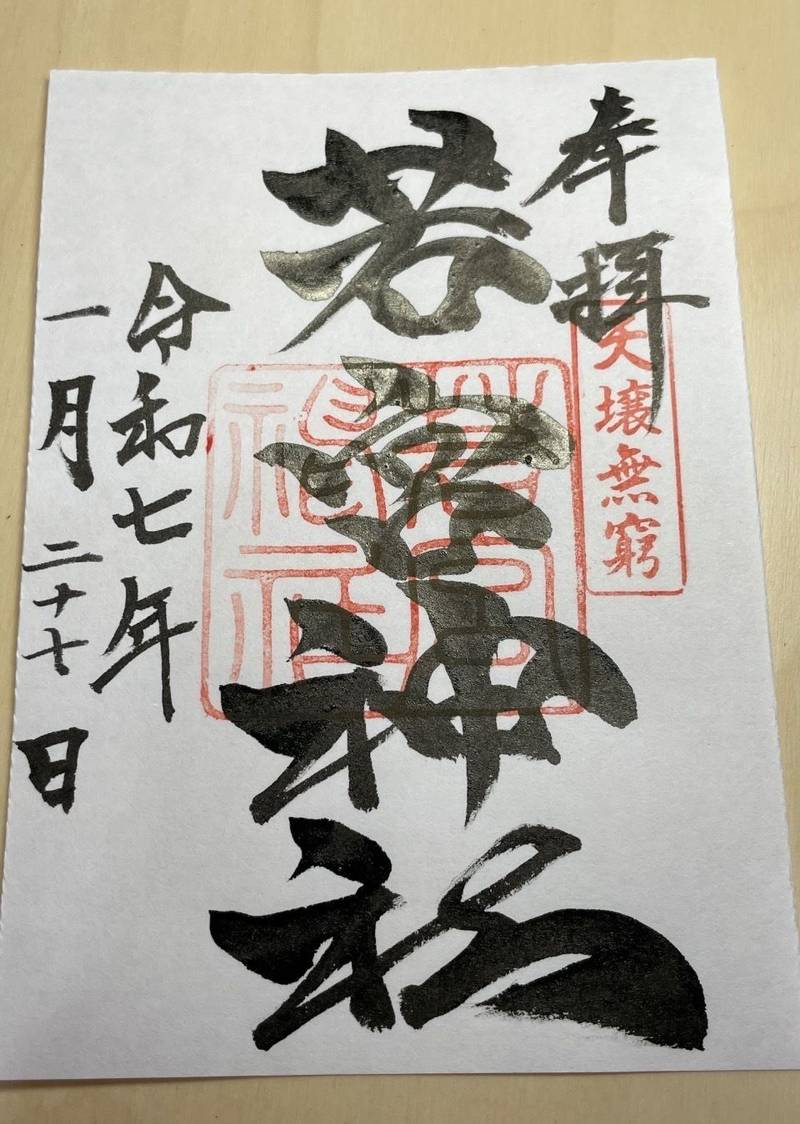 奉拝
天壌無窮
若宮神社
若宮神社
令和七年
一月二十七日